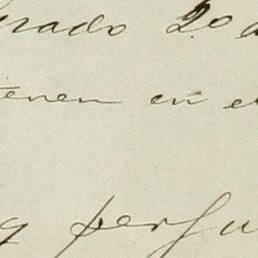 rado 2º d
ienen en e
y perju